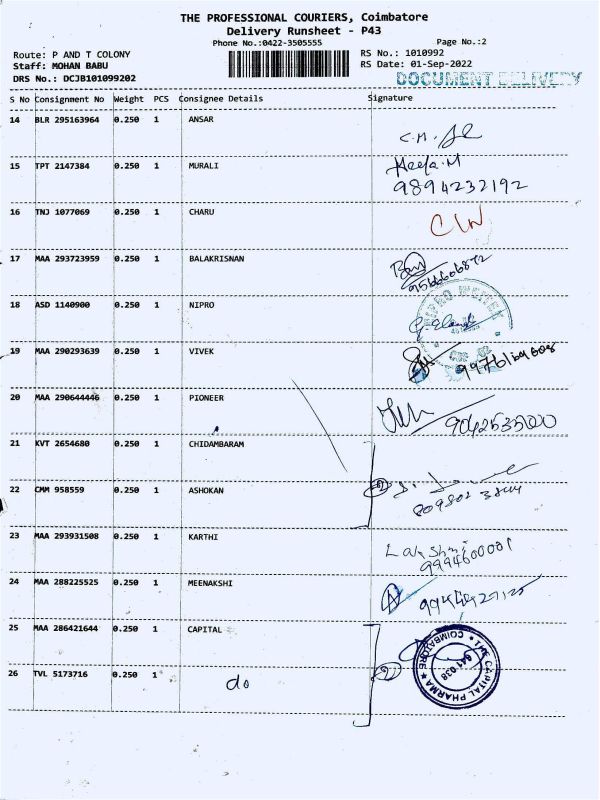 THE PROFESSIONAL COURIERS, Coimbatore
Delivery Runsheet - P43
Phone No.:0422-3505555
Page No.:2
Route: P AND T COLONY
RS No.: 1010992
Staff: MOHAN BABU
RS Date: 01-Sep-2022
DRS No.: DCJB101099202
DOCUMENT DELIVERY
S No Consignment No Weight PCS Consignee Details Signature
14 BLR 295163964 0.250 1 ANSAR
15 TPT 2147384 0.250 1 MURALI
9894232192
16 TNJ 1077069 0.250 1 CHARU
17 MAA 293723959 0.250 1 BALAKRISNAN
9566606872
18 ASD 1140900 0.250 1 NIPRO
19 MAA 290293639 0.250 1 VIVEK
9976169608
20 MAA 290644446 0.250 1 PIONEER
21 KVT 2654680 0.250 1 CHIDAMBARAM
22 CMM 958559 0.250 1 ASHOKAN
23 MAA 293931508 0.250 1 KARTHI
Lakshmi
9994600001
24 MAA 288225525 0.250 1 MEENAKSHI
25 MAA 286421644 0.250 1 CAPITAL
THE CAPITAL PHARMA
COIMBATORE
641 038
26 TVL 5173716 0.250 1 do